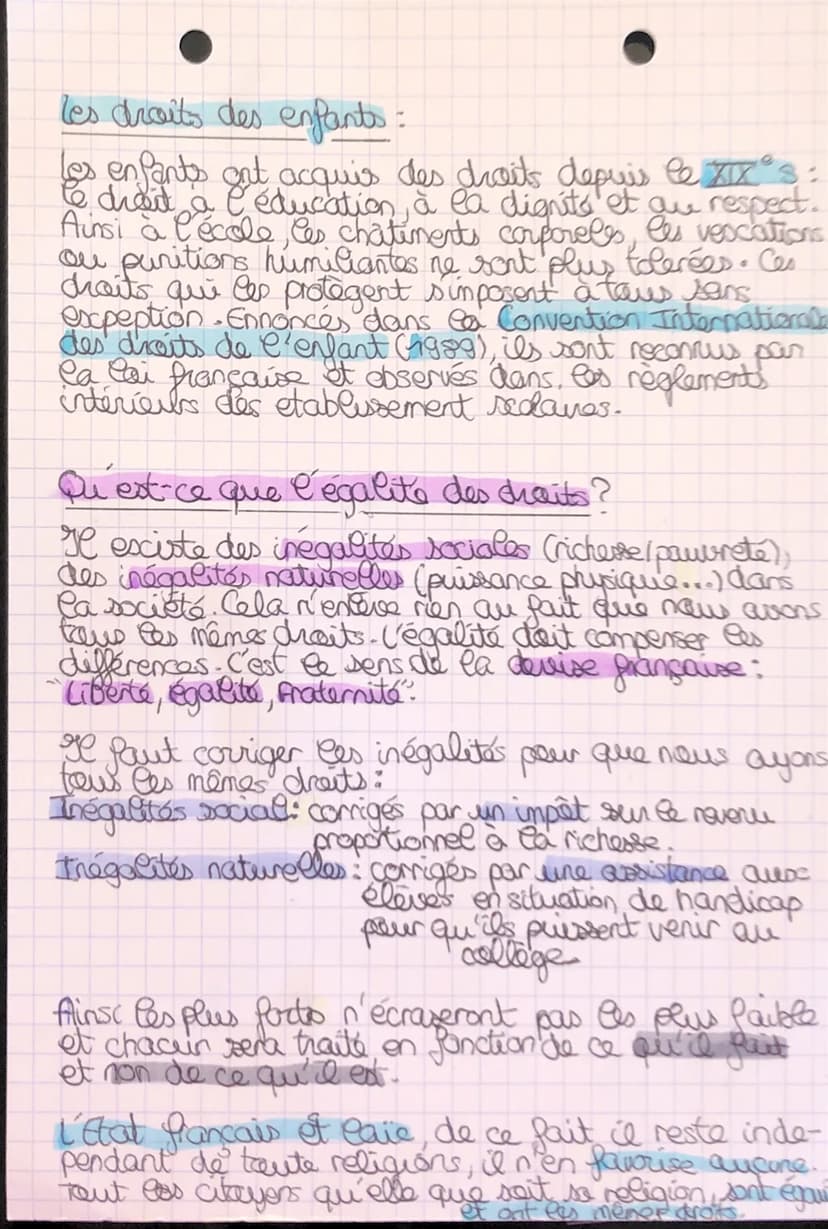 les droits des enfants :
les enfants ont acquis des droits depuis le XIX° s :
le droit à l'éducation, à la dignité et au respect.
Ainsi à l'école, les châtiments corporels, les vexcations
ou punitions humiliantes ne sont plus tolerées. Ces
droits qui les protègent s'imposent à tous sans
excpeption. Ennoncés dans la Convention Internationale
des droits de l'enfant (1989), ils sont reconnus par
la loi française et observés dans les règlements
intérieurs des etablissement scolaires.
Qu'est-ce que l'égalité des droits ?
Il existe des inégalités sociales (richesse/pauvreté),
des inégalités naturelles (puissance physique...) dans
la société. Cela n'enlève rien au fait que nous avons
tous les mêmes droits. L'égalité doit compenser les
différences. C'est le sens de la devise française :
"Liberté, égalité, Fraternité".
Il faut corriger les inégalités pour que nous ayons
tous les mêmes droits :
Inégalités social : corrigés par un impôt sur le revenu
proportionnel à la richesse.
Inégalités naturelles : corrigés par une assistance aux
élèves en situation de handicap
pour qu'ils puissent venir au
collège
Ainsi les plus forts n'écraseront pas les plus faible
et chacun sera traité en fonction de ce qu'il fait
et non de ce qu'il est.
L'État français et laïc, de ce fait il reste inde-
pendant de toute religions, il n'en favorise aucune.
Tout les citoyens qu'elle que soit sa religion, sont égaux
et ont les mêmes droits.